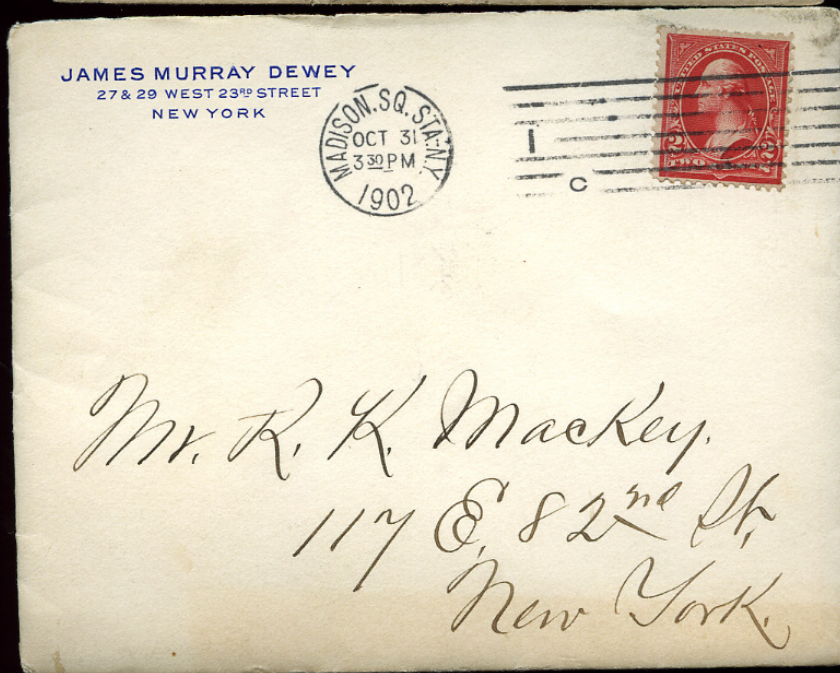 JAMES MURRAY DEWEY
27 & 29 WEST 23RD STREET
NEW YORK
MADISON.SQ.STA-N.Y.
OCT 31
3 30 PM
1902
1
C
UNITED STATES POSTAGE
2 TWO 2
Mr. R. K. Mackey.
117 E. 82nd St.
New York.